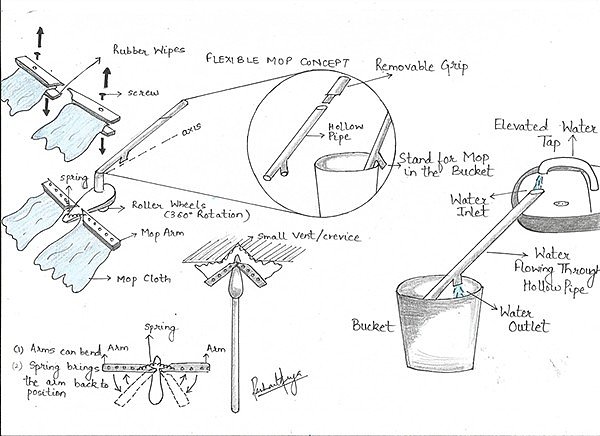 FLEXIBLE MOP CONCEPT
Rubber Wipes
screw
axis
spring
Roller Wheels
(360° Rotation)
Mop Arm
Mop Cloth
Removable Grip
Hollow
Pipe
Stand for Mop
in the Bucket
Elevated Water
Tap
Water
Inlet
Water
Flowing Through
Hollow Pipe
Water
Outlet
Bucket
Small Vent/crevice
Spring
Arm
Arm
(1) Arms can bend
(2) Spring brings
the arm back to
position